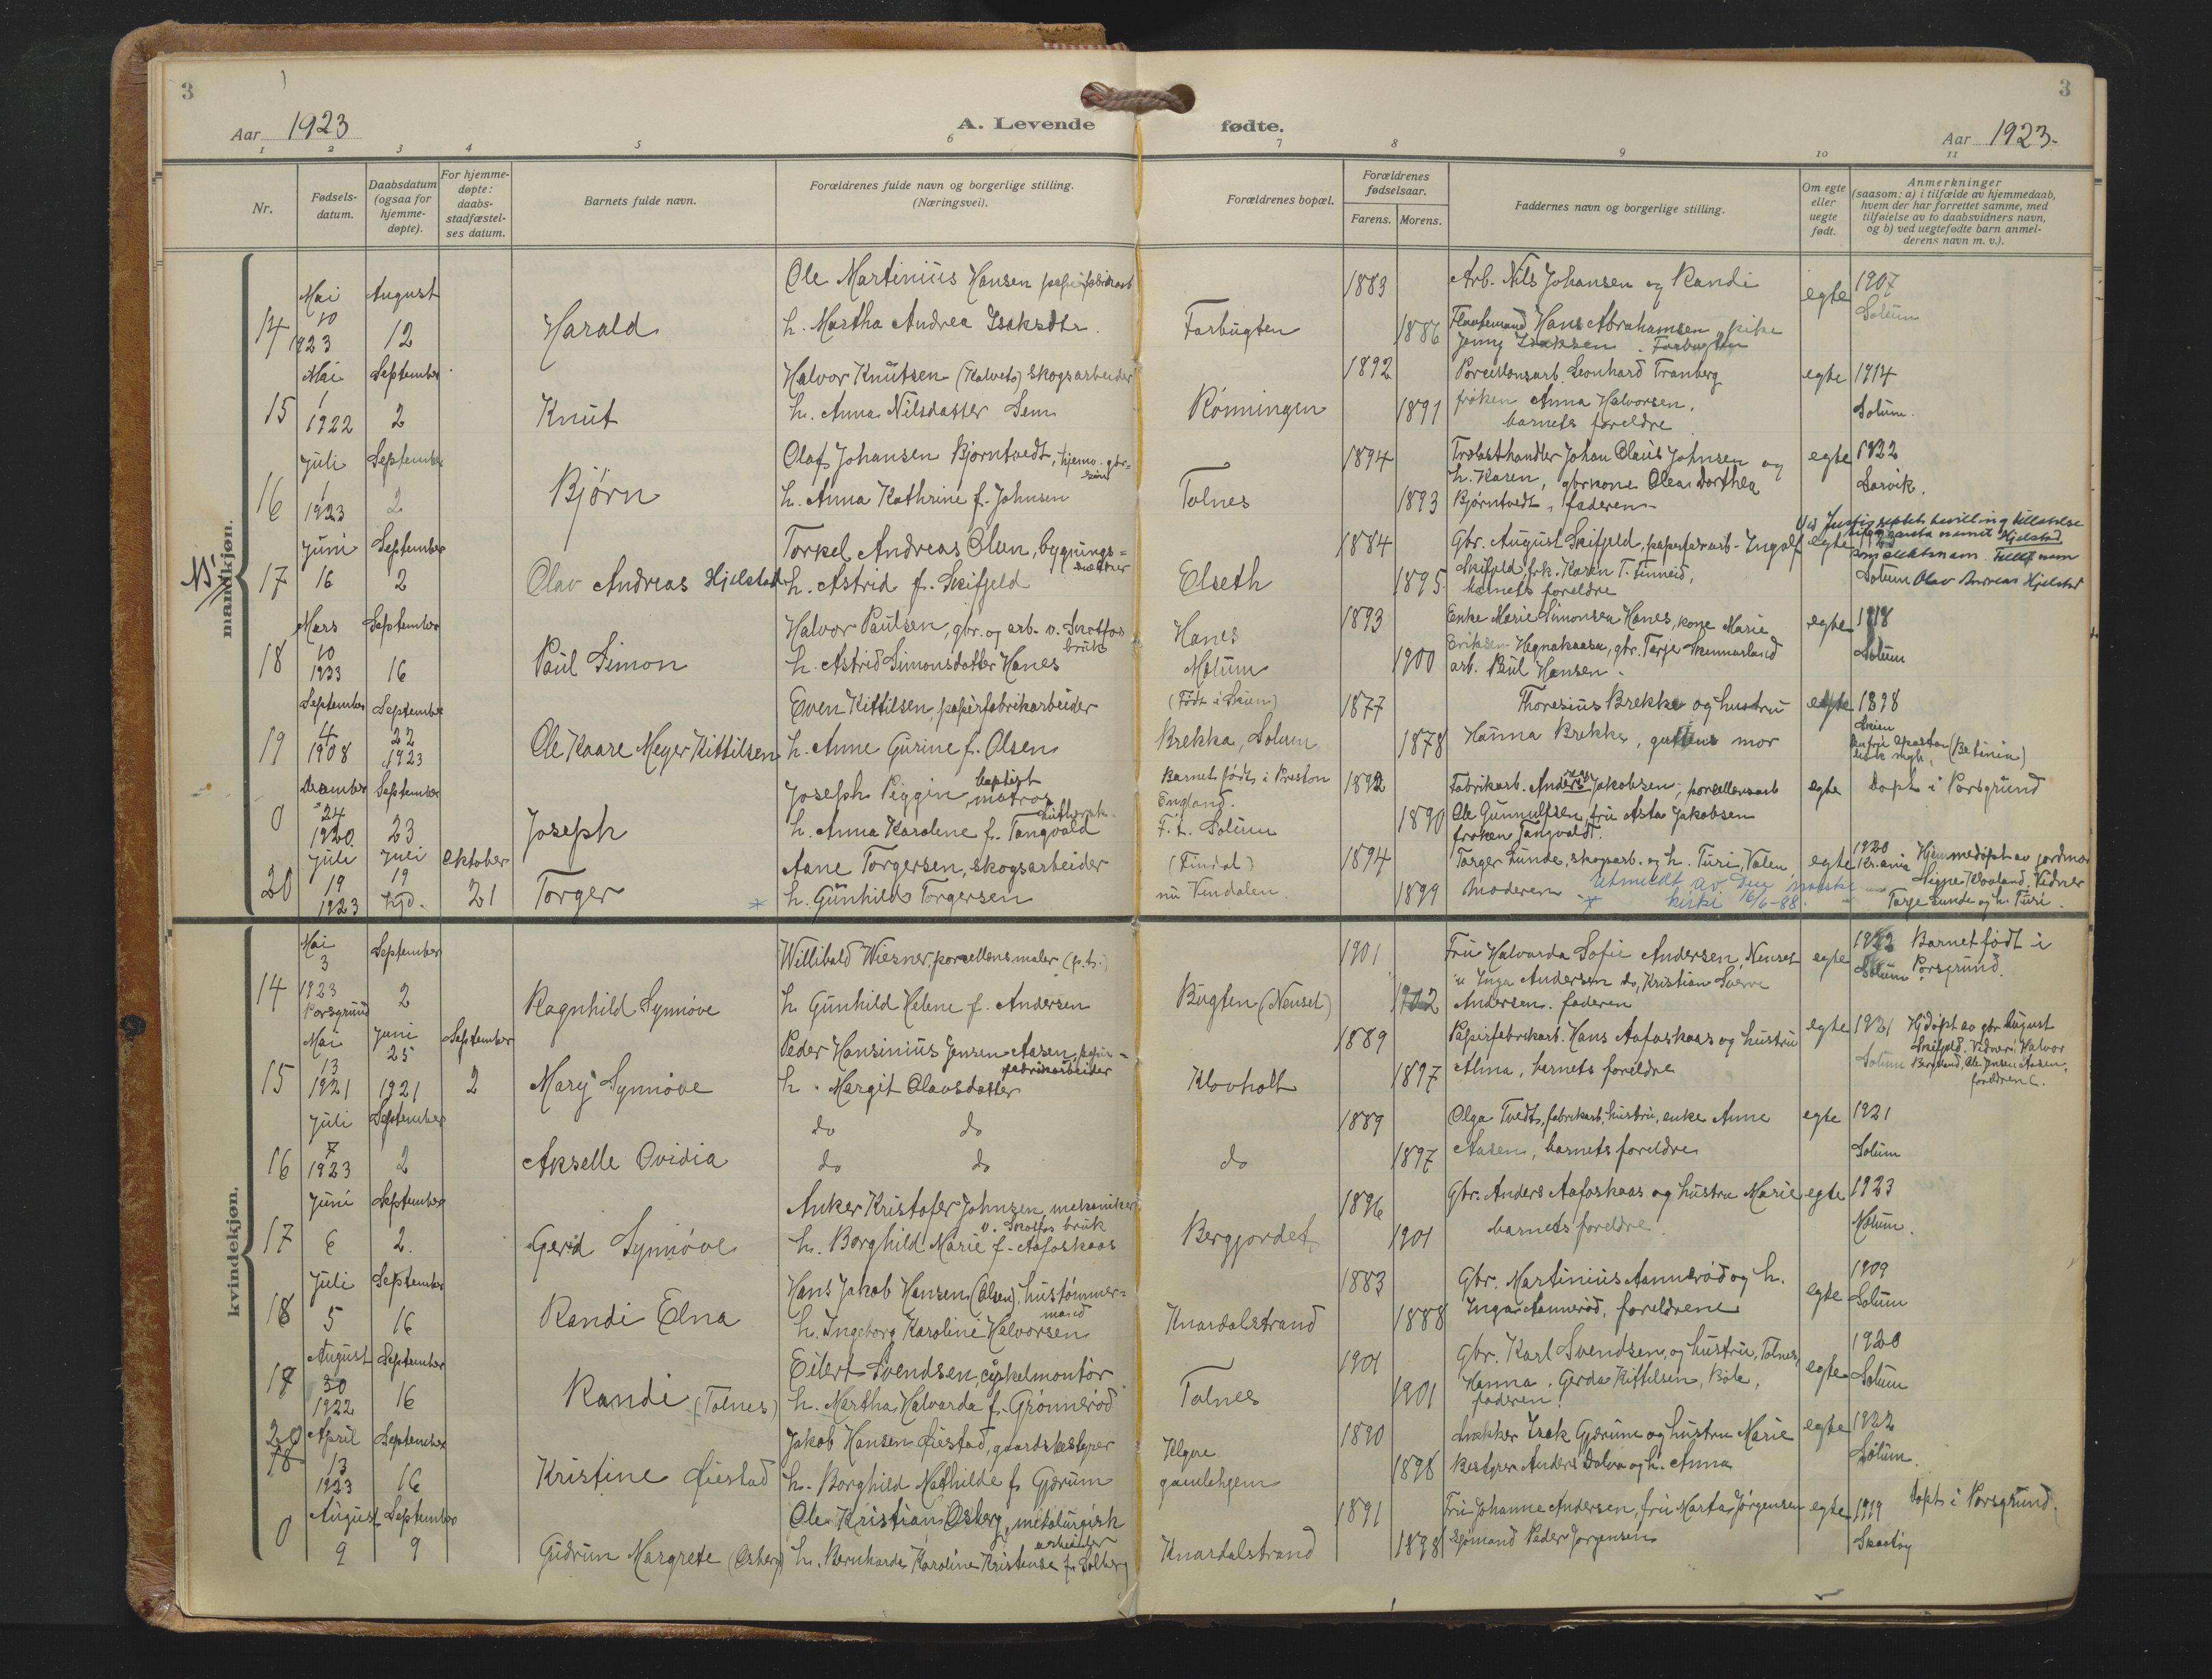 3
3
Aar 1923
A. Levende fødte.
Aar 1923.
1 2 3 4 5 6 7 8 9 10 11
Nr.
Fødsels-
datum.
Daabsdatum
(ogsaa for
hjemme-
døpte).
For hjemme-
døpte:
daabs-
stadfæstel-
ses datum.
Barnets fulde navn.
Forældrenes fulde navn og borgerlige stilling.
(Næringsvei).
Forældrenes bopæl.
Forældrenes
fødselsaar.
Farens. Morens.
Faddernes navn og borgerlige stilling.
Om egte
eller
uegte
født.
Anmerkninger
(saasom: a) i tilfælde av hjemmedaab,
hvem der har forrettet samme, med
tilføielse av to daabsvidners navn,
og b) ved uegtefødte barn anmel-
derens navn m. v.).
mandkjøn.
14 Mai 10 1923 August 12 Harald
Ole Martinius Hansen papirfabrikarb
h. Martha Andrea Isaksdtr.
Farbugten 1883 1886
Arb. Nils Johansen og Randi
Hans Abrahamsen, pike
Jenny Isaksen. Farbugten
egte 1907
Solum
15 Mai 1 1922 September 2 Knut
Halvor Knutsen (Kalvets) skogsarbeider
h. Anna Nilsdatter Sem
Rønningen 1892 1891
Porcellensarb. Leonhard Tranberg
frøken Anna Halvorsen,
barnets foreldre
egte 1914
Solum.
16 Juli 1 1923 September 2 Bjørn
Olaf Johansen Bjørntvedt, hjemv. gbr-
søn
h. Anna Kathrine f. Johnsen
Tolnes 1894 1893
Trælasthandler Johan Claus Johnsen og
h. Karen, gbrkone Olea Dorthea
Bjørntvedt, faderen
egte 1922
Larvik.
17 Juni 16 September 2 Olav Andreas Hjelstad
Torkel Andreas Olsen, bygnings-
snekker
h. Astrid f. Skifjeld
Elseth 1884 1895
Gbr. August Skifjeld, papirfabarb. Ingolf
Skifjeld frk. Karen T. Finneid,
barnets foreldre
egte 1923
Solum Olav Andreas Hjelstad
18 Mars 10 1923 September 16 Paul Simon
Halvor Paulsen, gbr. og arb. v. Skotfos
bruk
h. Astrid Simonsdatter Hanes
Hanes
Mælum 1893 1900
Enke Marie Simonsen Hanes, kone Marie
Eriksen Hegnakaasa, gbr. Terje
arb. Paul Hansen.
egte 1918
Solum
19 September 4 1908 September 22 1923 Ole Kaare Meyer Kittilsen
Even Kittilsen, papirfabrikarbeider
h. Anne Gurine f. Olsen
(Født i Skien)
Brekka, Solum 1877 1878
Thoresius Brekke og hustru
Hanna Brekke, guttens mor
egte 1898
Skien
0 December 24 1920 September 23 Joseph
Joseph Piggin, baptist matros
luthersk
h. Anna Karolene f. Tangvald
Barnet født i Preston
England.
F. t. Solum 1892 1890
Fabrikarb. Anders Jakobsen, porcellensarb
Ole Gunnulfsen, fru Asta Jakobsen
frøken Tangvaldt.
egte Døpt i Porsgrund
20 Juli 19 1923 Juli 19 hjd. Oktober 21 Torger
Aane Torgersen, skogsarbeider
h. Gunhild Torgersen
(Findal)
nu Vindalen 1894 1899
Torger Lunde, skogarb. og h. Turi, Valen
moderen. Utmeldt av Den norske
kirke 16/6-88.
egte 1920
Kr.ania Hjemmedøpt av jordmor
Signe Kloland. Vidner
Torge Lunde og h. Turi.
kvindekjøn.
14 Mai 3 1923 Porsgrund September 2 Ragnhild Synnøve
Willibald Wiesner, porcellensmaler (p.t.)
h Gunhild Helene f. Andersen
Bugten (Nenset) 1901 1902
Fru Halvarda Sofie Andersen, Nenset
" Inga Andersen do, Kristian Sverre
Andersen. faderen
egte 1922 Barnet født i
Solum Porsgrund.
15 Mai 13 1921 Juni 25 1921 September 2 Mary Synnøve
Peder Hansinius Jensen Aasen, papir-
fabrikarbeider
h. Margit Olavsdatter
Klovholt 1889 1897
Papirfabrikarb. Hans Aafoskaas og hustru
Alma, barnets foreldre
egte 1921 Hjdøpt av gbr August
Skifjeld. Vidner: Halvor
Solum Bergland, Ole Jensen Aasen,
foreldrene.
16 Juli 7 1923 September 2 Akselle Ovidia
do do
do do
do 1889 1897
Olga Tvedt, fabrikarb. hustru, enke Anne
Aasen, barnets foreldre
egte 1921
Solum
17 Juni 6 September 2. Gerd Synnøve
Anker Kristofer Johnsen, mekaniker
v. Skotfos bruk
h. Borghild Marie f. Aafoskaas
Bergjordet 1896 1901
Gbr. Anders Aafoskaas og hustru Marie
barnets foreldre
egte 1923
Mælum.
18 Juli 5 September 16 Randi Elna
Hans Jakob Hansen (Olsen), hustømmer-
mand
h. Ingeborg Karoline Halvorsen
Knardalstrand 1883 1888
Gbr. Martinius Aannerød og h.
Inga Aannerød, foreldrene
egte 1909
Solum
August 30 1922 September 16 Randi (Tolnes)
Eilert Svendsen, cykelmontør
h. Martha Halvarda f. Grønnerød
Tolnes 1901 1901
Gbr. Karl Svendsen, og hustru, Tolnes,
Hanna. Gerda Kittilsen, Bøle,
faderen.
egte 1920
Solum
20 April 13 1923 September 16 Kristine Øiestad
Jakob Hansen Øiestad, gaardsbestyrer
h. Borghild Mathilde f. Gjærum
Klyve
gamlehjem 1890 1898
Snekker Isak Gjærum og hustru Marie
Bestyrer Anders Dolva og h. Anna
egte 1922
Solum.
0 August 9 September 9 Gudrun Margrete (Osberg)
Ole Kristian Osberg, metalurgisk
arbeider
h. Bernharda Karoline Kristense f. Solberg
Knardalstrand 1891 1898
Fru Johanne Andersen, fru Marta Jørgensen
Sjømand Peder Jørgensen
egte 1919 Døpt i Porsgrund.
Skaatøy